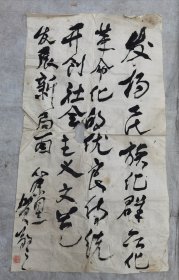 发扬民族化群众化
革命化的优良传统
开创社会主义文艺
发展新局面